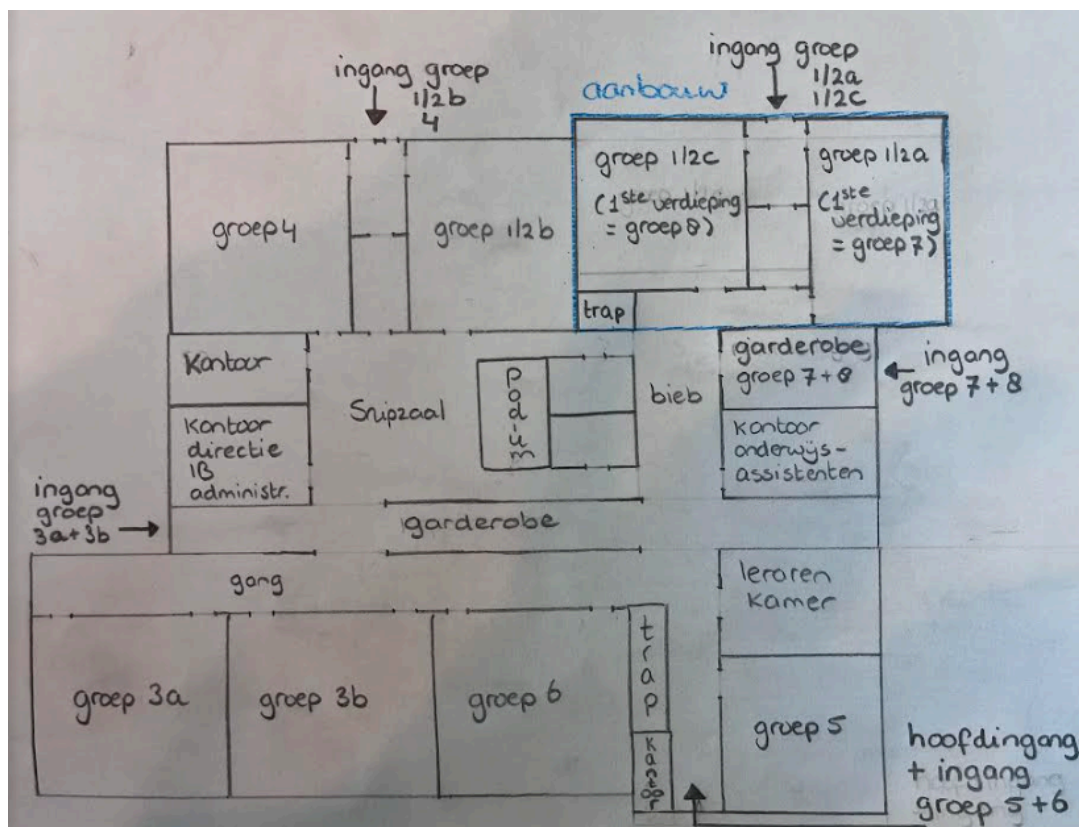 ingang groep
1/2b
4
aanbouw
ingang groep
1/2a
1/2c
groep 4
groep 1/2b
groep 1/2c
(1ste verdieping
= groep 8)
groep 1/2a
(1ste
verdieping
= groep 7)
trap
Kantoor
Snipzaal
podium
bieb
garderobe
groep 7+8
ingang
groep 7+8
Kantoor
directie
IB
administr.
kantoor
onderwijs-
assistenten
ingang
groep
3a+3b
garderobe
gang
leraren
kamer
groep 3a
groep 3b
groep 6
trap
kantoor
groep 5
hoofdingang
+ ingang
groep 5+6